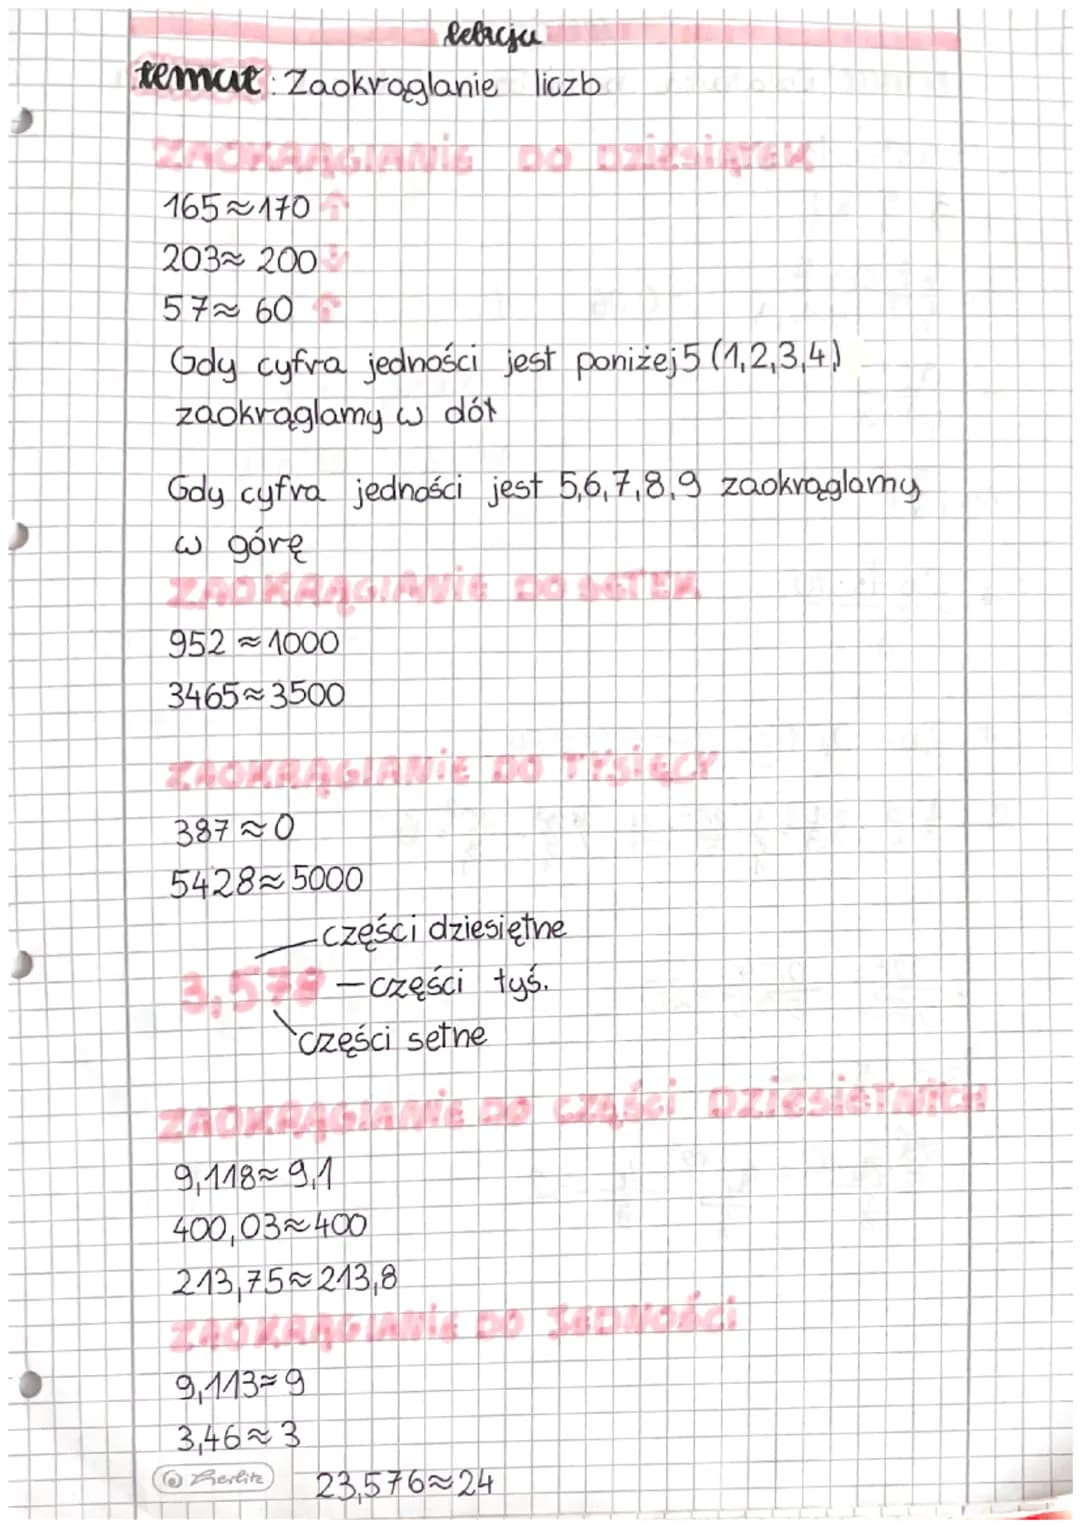 lekcja
temat: Zaokrąglanie liczb
ZAOKRĄGlANiE DO DZiESiĄTEK
165≈170 ↑
203≈ 200 ↓
57≈ 60 ↑
Gdy cyfra jedności jest poniżej 5 (1,2,3,4)
zaokrąglamy w dół
Gdy cyfra jedności jest 5,6,7,8,9 zaokrąglamy
w górę
ZAOKRĄGlANiE DO SETEK
952 ≈ 1000
3465≈3500
ZAOKRĄGlANiE DO TYSiĘCY
387≈0
5428≈5000
części dziesiętne
3,578 – części tyś.
części setne
ZAOKRĄGlANiE DO CZĘŚCi DZiESiĘTNYCH
9,118≈ 9,1
400,03≈400
213,75≈213,8
ZAOKRĄGlANiE DO JEDNOŚCi
9,113≈9
3,46≈3
Herlitz 23,576≈24